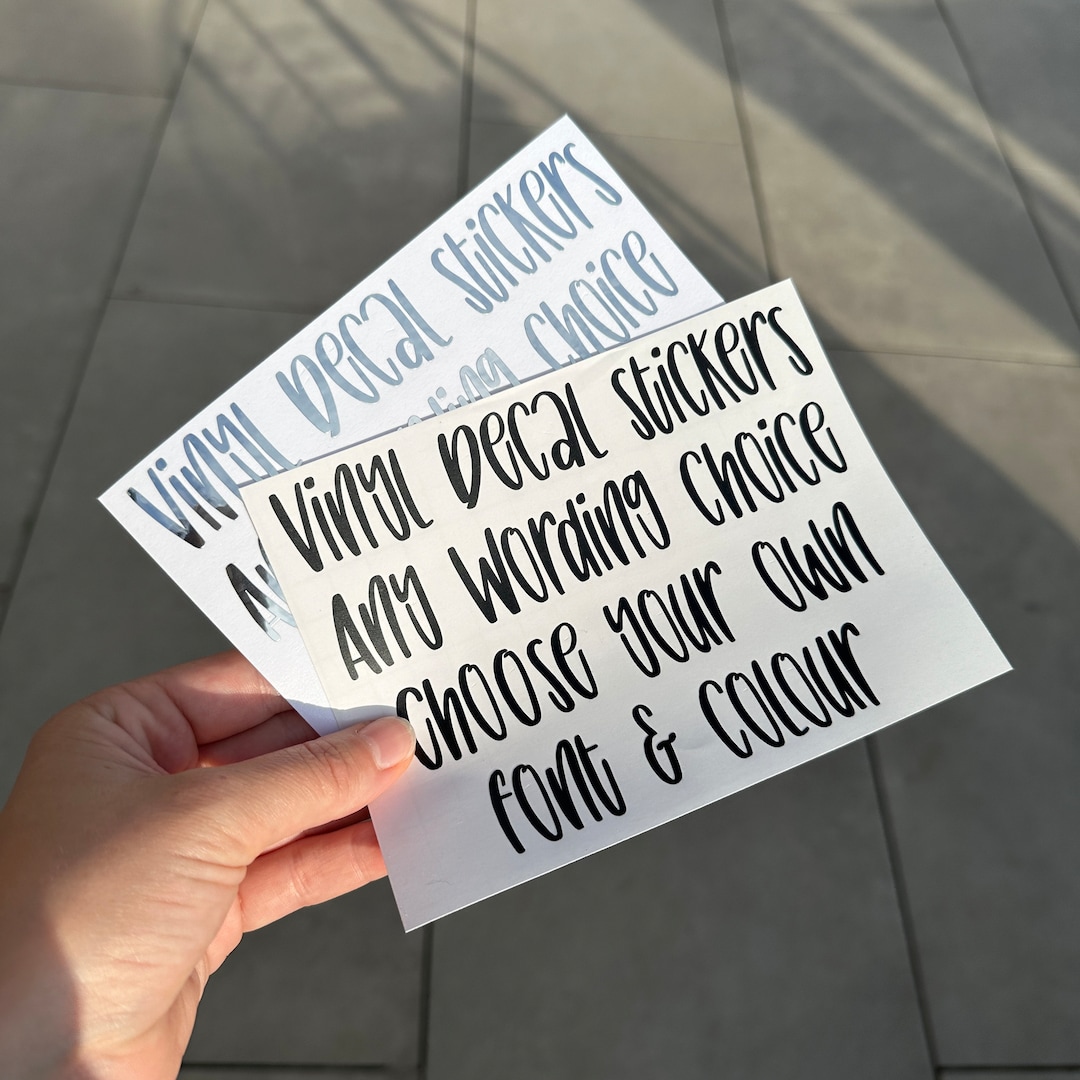 Vinyl Decal Stickers
Any wording choice
Vinyl Decal Stickers
Any Wording Choice
Choose your own
font & colour